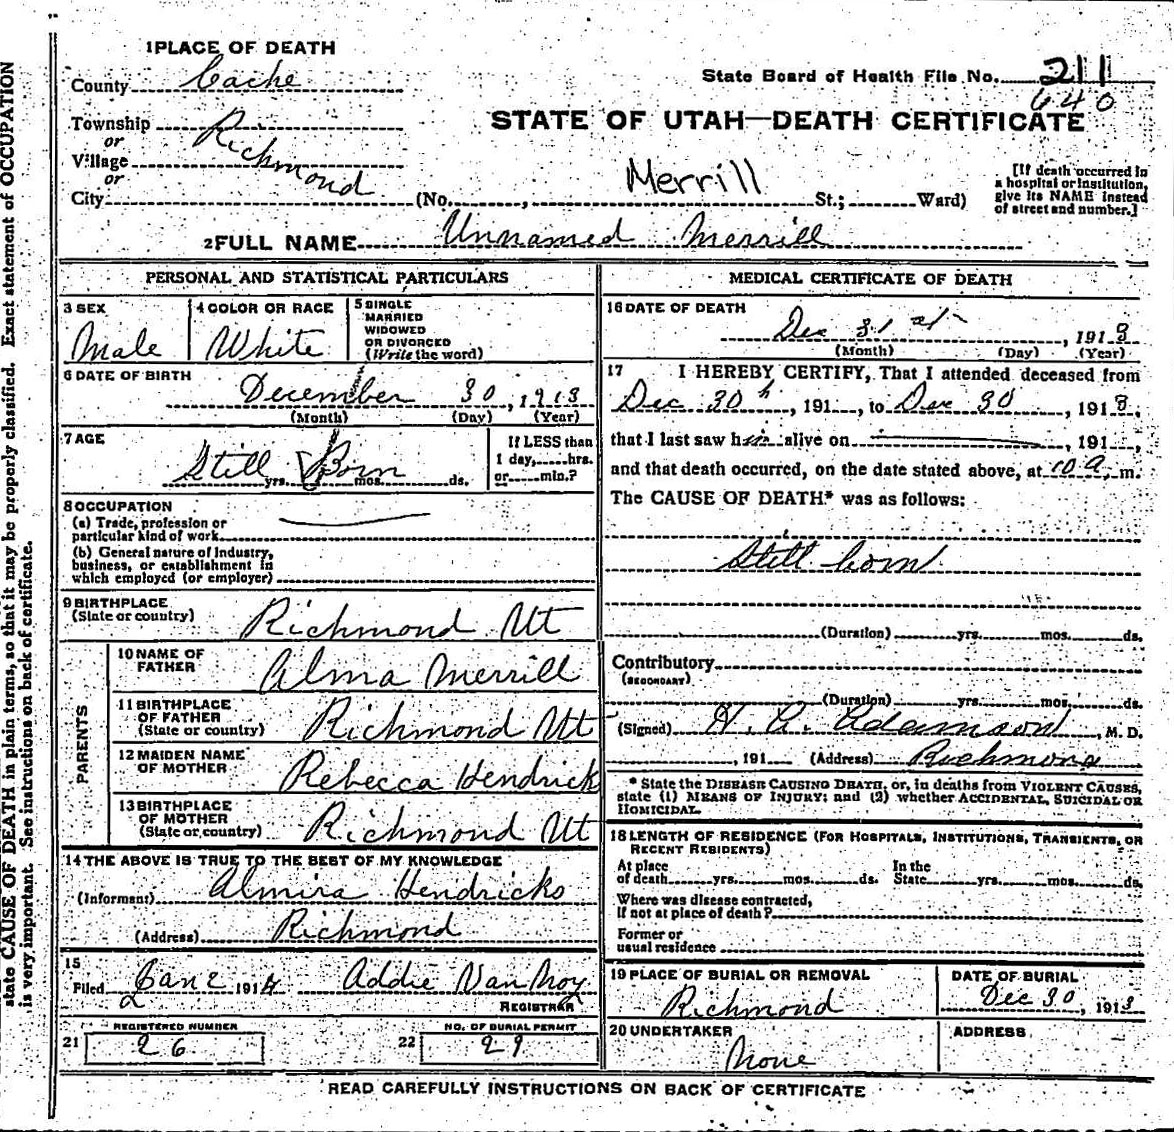 state CAUSE OF DEATH in plain terms, so that it may be properly classified. Exact statement of OCCUPATION
is very important. See instructions on back of certificate.
1 PLACE OF DEATH
County Cache
State Board of Health File No. 211
640
STATE OF UTAH—DEATH CERTIFICATE
Township
or
Village Richmond
or
City (No. , Merrill St.; Ward)
[If death occurred in
a hospital or institution,
give its NAME instead
of street and number.]
2 FULL NAME Unnamed Merrill
PERSONAL AND STATISTICAL PARTICULARS
3 SEX
Male
4 COLOR OR RACE
White
5 SINGLE
MARRIED
WIDOWED
OR DIVORCED
(Write the word)
6 DATE OF BIRTH
December 30, 1913
(Month) (Day) (Year)
7 AGE
Still Born
yrs. mos. ds.
If LESS than
1 day, hrs.
or min.?
8 OCCUPATION
(a) Trade, profession or
particular kind of work
(b) General nature of industry,
business, or establishment in
which employed (or employer)
9 BIRTHPLACE
(State or country) Richmond Ut
PARENTS
10 NAME OF
FATHER Alma Merrill
11 BIRTHPLACE
OF FATHER
(State or country) Richmond Ut
12 MAIDEN NAME
OF MOTHER Rebecca Hendrick
13 BIRTHPLACE
OF MOTHER
(State or country) Richmond Ut
14 THE ABOVE IS TRUE TO THE BEST OF MY KNOWLEDGE
(Informant) Almira Hendricks
(Address) Richmond
15
Filed Jan 2 1914 Addie Van Noy
REGISTRAR
REGISTERED NUMBER
21 26
NO. OF BURIAL PERMIT
22 29
MEDICAL CERTIFICATE OF DEATH
16 DATE OF DEATH
Dec 31 st, 1913
(Month) (Day) (Year)
17 I HEREBY CERTIFY, That I attended deceased from
Dec 30 h, 191 , to Dec 30, 1913,
that I last saw him alive on , 191 ,
and that death occurred, on the date stated above, at 10 a. m.
The CAUSE OF DEATH* was as follows:
Still born
(Duration) yrs. mos. ds.
Contributory
(SECONDARY)
(Duration) yrs. mos. ds.
(Signed) Adamson, M. D.
, 191 (Address) Richmond
* State the DISEASE CAUSING DEATH, or, in deaths from VIOLENT CAUSES,
state (1) MEANS OF INJURY; and (2) whether ACCIDENTAL, SUICIDAL OR
HOMICIDAL.
18 LENGTH OF RESIDENCE (FOR HOSPITALS, INSTITUTIONS, TRANSIENTS, OR
RECENT RESIDENTS)
At place
of death yrs. mos. ds.
In the
State yrs. mos. ds.
Where was disease contracted,
if not at place of death?
Former or
usual residence
19 PLACE OF BURIAL OR REMOVAL
Richmond
DATE OF BURIAL
Dec 30, 1913
20 UNDERTAKER
None
ADDRESS
READ CAREFULLY INSTRUCTIONS ON BACK OF CERTIFICATE